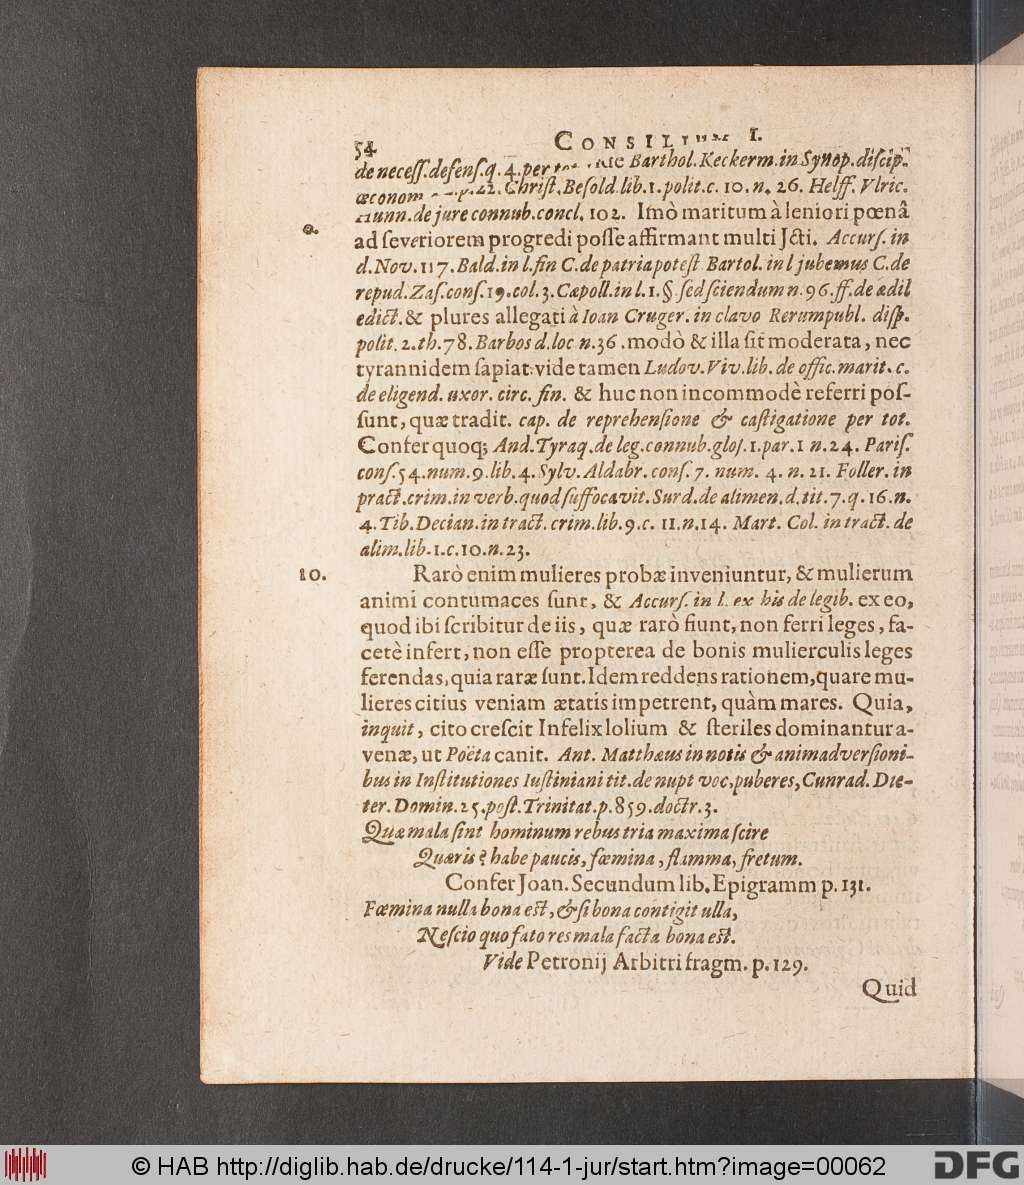 54 CONSILIUM I.
de neceſſ. defenſ. q. 4. per Barthol. Keckerm. in Synop. diſcip.
œconom 22. Chriſt. Beſold. lib. 1. polit. c. 10. n. 26. Helff. Vlric.
Hunn. de jure connub. concl. 102. Imò maritum à leniori pœnâ
9.
ad ſeveriorem progredi poſſe affirmant multi Jcti. Accurſ. in
d. Nov. 117. Bald. in l. fin C. de patria poteſt Bartol. in l jubemus C. de
repud. Zaſ. conſ. 19. col. 3. Cæpoll. in l. 1. § ſed ſciendum n. 96. ff. de ædil
edict. & plures allegati à Ioan Cruger. in clavo Rerumpubl. diſp.
polit. 2. th. 78. Barbos d. loc n. 36. modò & illa ſit moderata, nec
tyrannidem ſapiat: vide tamen Ludov. Viv. lib. de offic. marit. c.
de eligend. uxor. circ. fin. & huc non incommodè referri poſ-
ſunt, quæ tradit. cap. de reprehenſione & caſtigatione per tot.
Confer quoq; And. Tyraq. de leg. connub. gloſ. 1. par. 1 n. 24. Pariſ.
conſ. 54. num. 9. lib. 4. Sylv. Aldabr. conſ. 7. num. 4. n. 21. Foller. in
pract. crim. in verb. quod ſuffocavit. Surd. de alimen. d. tit. 7. q. 16. n.
4. Tib. Decian. in tract. crim. lib. 9. c. 11. n. 14. Mart. Col. in tract. de
alim. lib. 1. c. 10. n. 23.
10. Rarò enim mulieres probæ inveniuntur, & mulierum
animi contumaces ſunt, & Accurſ. in l. ex his de legib. ex eo,
quod ibi ſcribitur de iis, quæ rarò fiunt, non ferri leges, fa-
cetè infert, non eſſe propterea de bonis mulierculis leges
ferendas, quia raræ ſunt. Idem reddens rationem, quare mu-
lieres citius veniam ætatis impetrent, quàm mares. Quia,
inquit, cito creſcit Infelix lolium & ſteriles dominantur a-
venæ, ut Poëta canit. Ant. Matthæus in notis & animadverſioni-
bus in Inſtitutiones Iuſtiniani tit. de nupt voc, puberes, Cunrad. Die-
ter. Domin. 25. poſt. Trinitat. p. 859. doctr. 3.
Quæ mala ſint hominum rebus tria maxima ſcire
Quæris? habe paucis, fœmina, flamma, fretum.
Confer Joan. Secundum lib. Epigramm p. 131.
Fœmina nulla bona eſt, & ſi bona contigit ulla,
Neſcio quo fato res mala facta bona eſt.
Vide Petronij Arbitri fragm. p. 129.
Quid
© HAB http://diglib.hab.de/drucke/114-1-jur/start.htm?image=00062
DFG